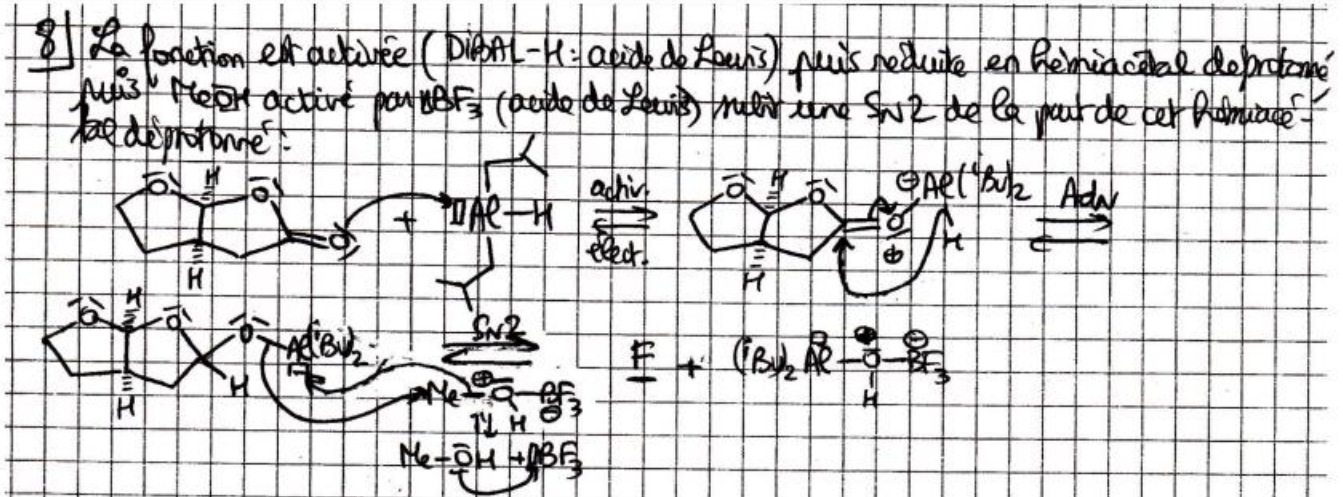 8] La fonction est activée (DIBAL-H: acide de Lewis) puis réduite en hémiacétal déprotoné
puis MeOH activé par BF3 (acide de Lewis) subit une SN2 de la part de cet hémiacé-
tal déprotonné:
O H O O + Al-H activ. élect. O H O O ⊕ ⊖Al(iBu)2 H AdN
H H
O H O O Al(iBu)2 H SN2 F + (iBu)2 Al-O-BF3
H Me-O-BF3 ⊕ ⊖ H H
Me-OH + BF3